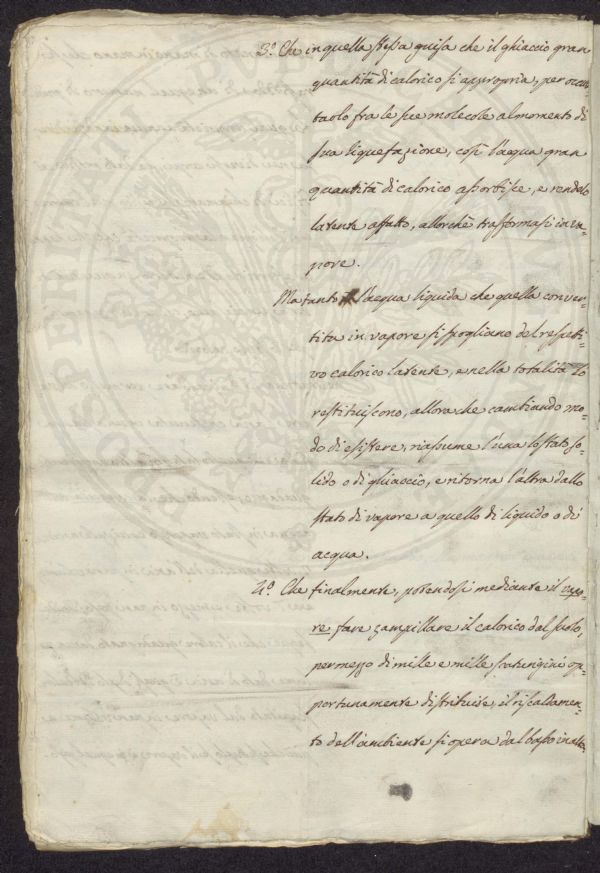 3.° Che in quella stessa guisa che il ghiaccio gran
quantità di calorico si appropria, per occul-
tarlo fra le sue molecole al momento di
sua liquefazione, così l'acqua gran
quantità di calorico assorbisce, e rendelo
latente affatto, allorchè trasformasi in va-
pore.
Ma tanto l'acqua liquida che quella conver-
tita in vapore si spogliano del respetti-
vo calorico latente, e nella totalità lo
restituiscono, allora che cambiando mo-
do di esistere, riassume l'una lo stato so-
lido o di ghiaccio, e ritorna l'altra dallo
stato di vapore a quello di liquido o di
acqua.
4.° Che finalmente, potendosi mediante il vapo-
re fare zampillare il calorico dal suolo,
per mezzo di mille e mille op-
portunamente distribuite, il riscaldamen-
to dell'ambiente si opera dal basso in alto
PROSPERITATI PUBLICAE